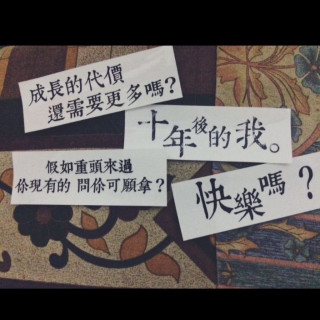 成長的代價
還需要更多嗎？
十年後的我。
假如重頭來過
你現有的 問你可願拿？
快樂嗎？